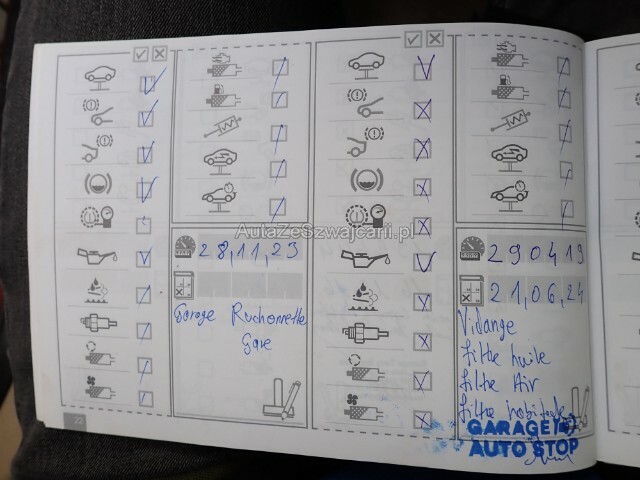 28,11,23
Garage Ruchonnette
Gare
AutaZeSzwajcarii.pl
290419
21,06,24
Vidange
filtre huile
filtre Air
filtre habitacle
GARAGE
AUTO STOP
22